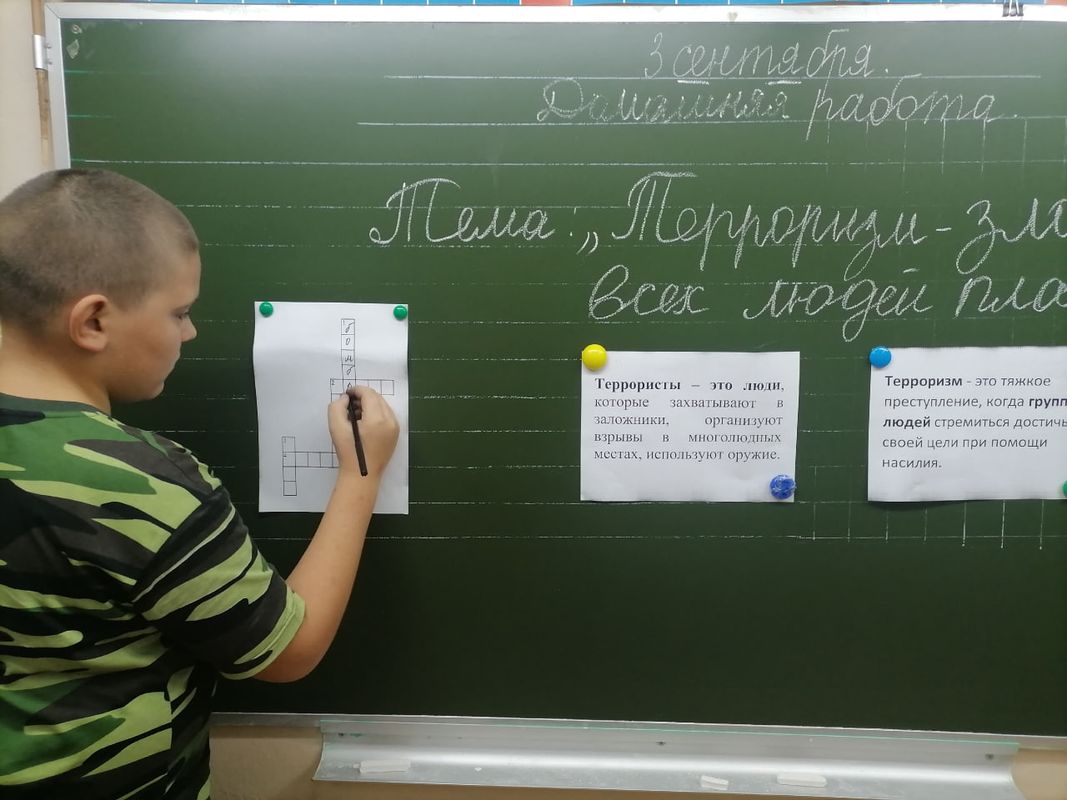 3 сентября.
Домашняя работа.
Тема: „Терроризм - зло
всех людей пла
б
о
м
б
Террористы – это люди,
которые захватывают в
заложники, организуют
взрывы в многолюдных
местах, используют оружие.
Терроризм - это тяжкое
преступление, когда групп
людей стремиться достичь
своей цели при помощи
насилия.